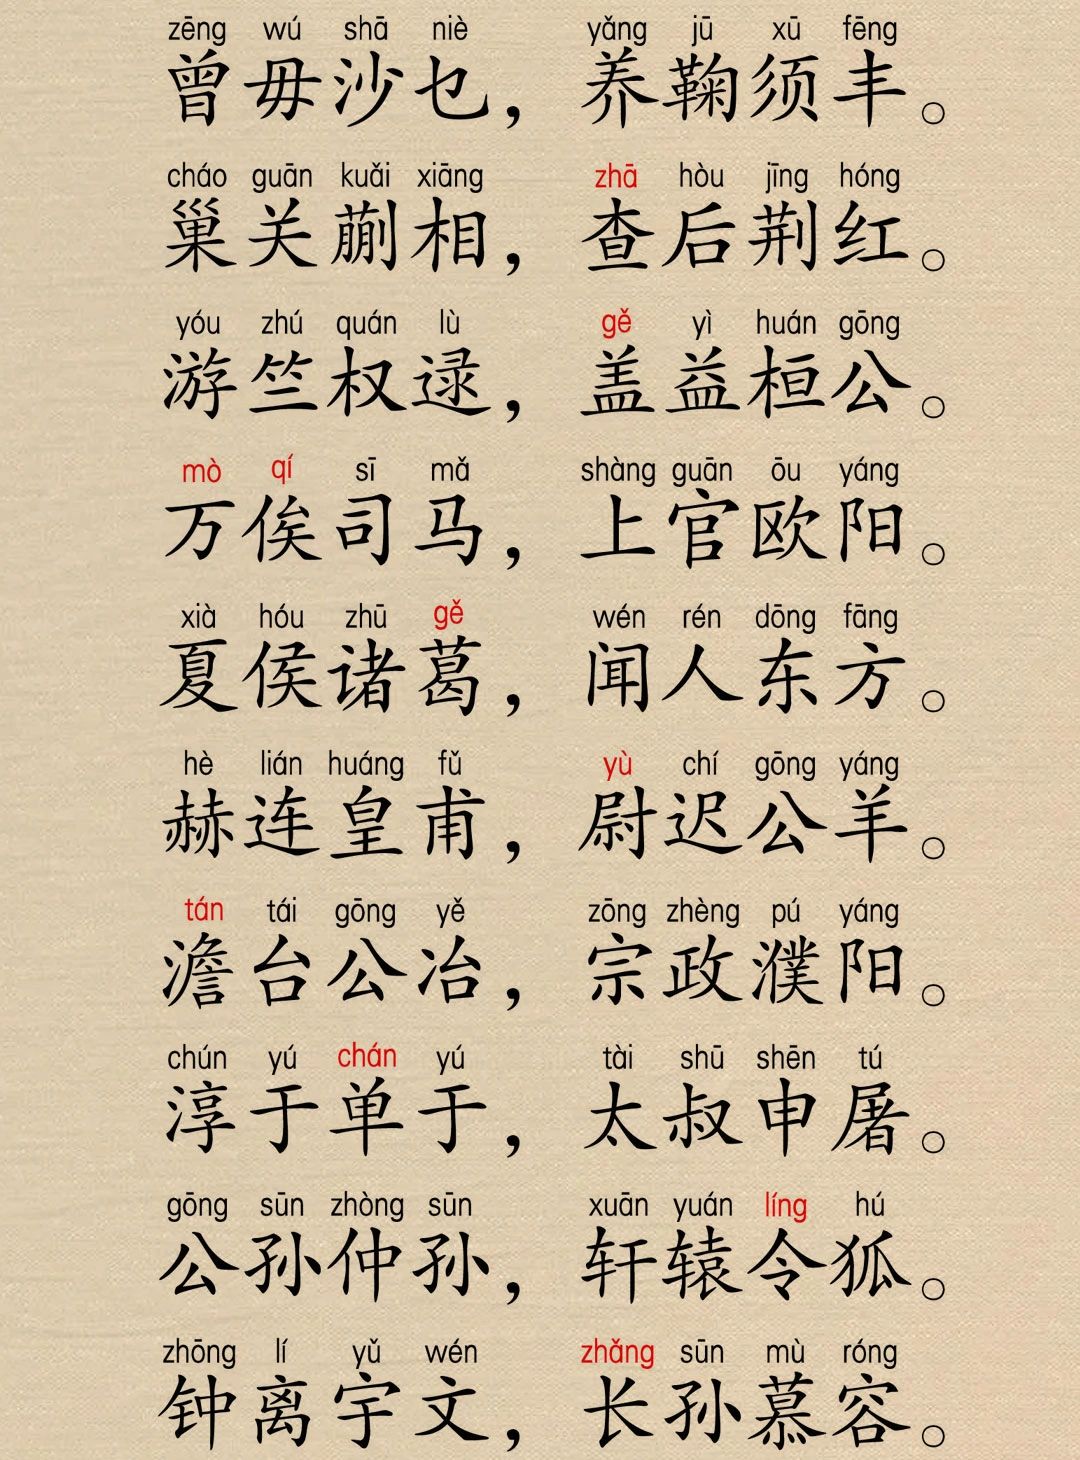 zēng wú shā niè yǎng jū xū fēng
曾毋沙乜，养鞠须丰。
cháo guān kuǎi xiāng zhā hòu jīng hóng
巢关蒯相，查后荆红。
yóu zhú quán lù gě yì huán gōng
游竺权逯，盖益桓公。
mò qí sī mǎ shàng guān ōu yáng
万俟司马，上官欧阳。
xià hóu zhū gě wén rén dōng fāng
夏侯诸葛，闻人东方。
hè lián huáng fǔ yù chí gōng yáng
赫连皇甫，尉迟公羊。
tán tái gōng yě zōng zhèng pú yáng
澹台公冶，宗政濮阳。
chún yú chán yú tài shū shēn tú
淳于单于，太叔申屠。
gōng sūn zhòng sūn xuān yuán líng hú
公孙仲孙，轩辕令狐。
zhōng lí yǔ wén zhǎng sūn mù róng
钟离宇文，长孙慕容。